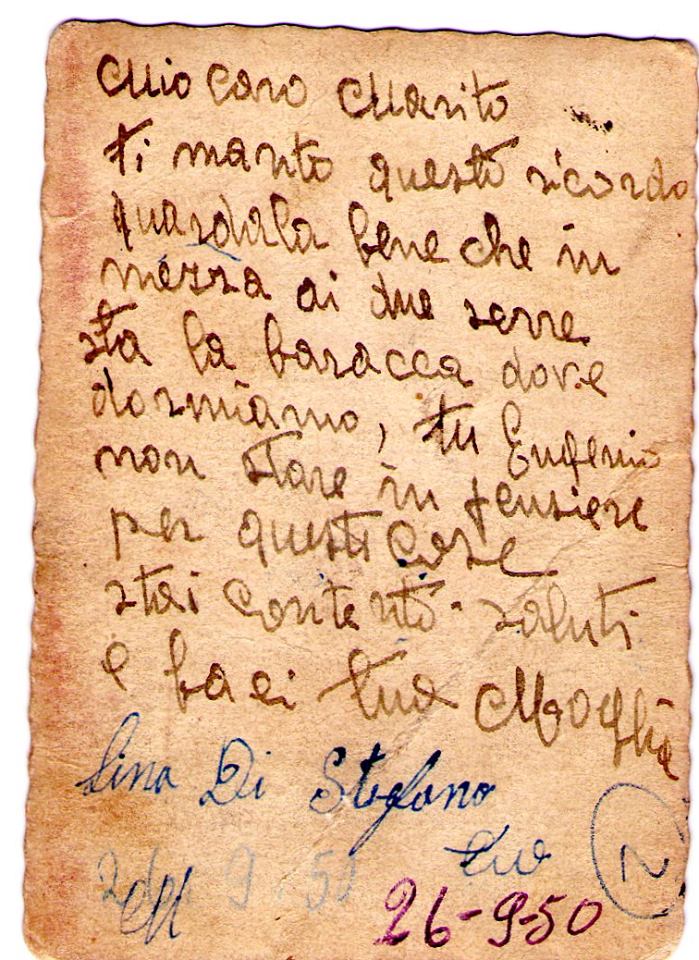 Mio Caro Marito
ti manto questo ricordo
quardala bene che in
mezza ai due serre
sta la baracca dove
dormiamo, tu Eugenio
non stare in pensiere
per questi Cose
stai contento - saluti
e baci tua Moglie
Lina Di Stefano
2
9.50
26-9-50